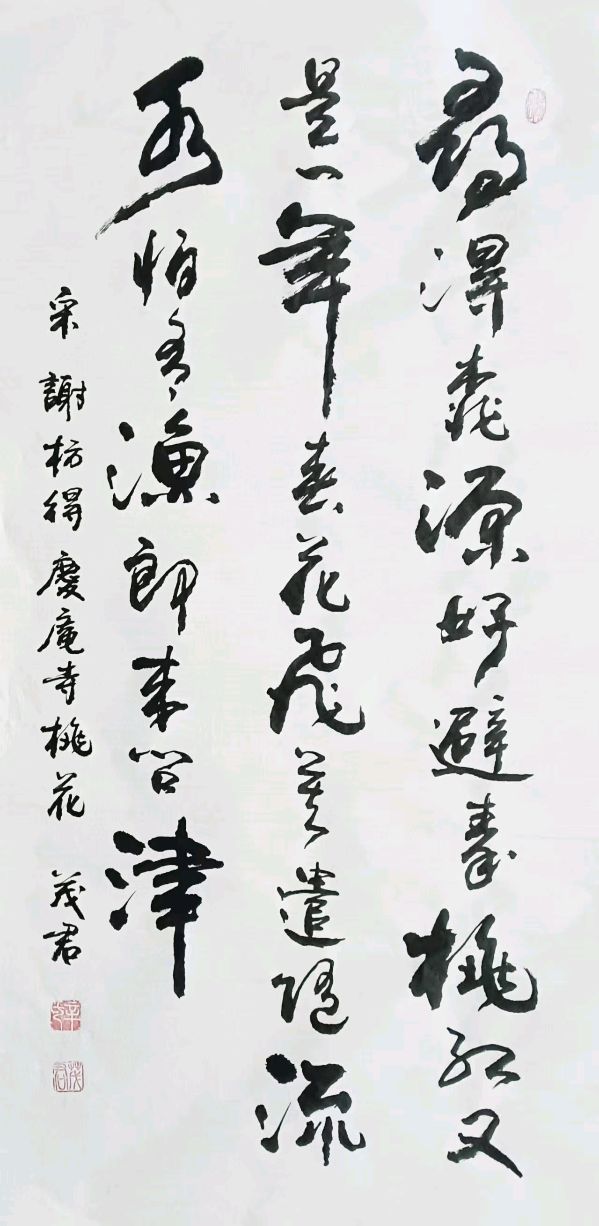 尋得桃源好避秦桃紅又
是一年春花飛莫遣隨流
水怕有漁郎來問津
宋謝枋得慶庵寺桃花 茂君